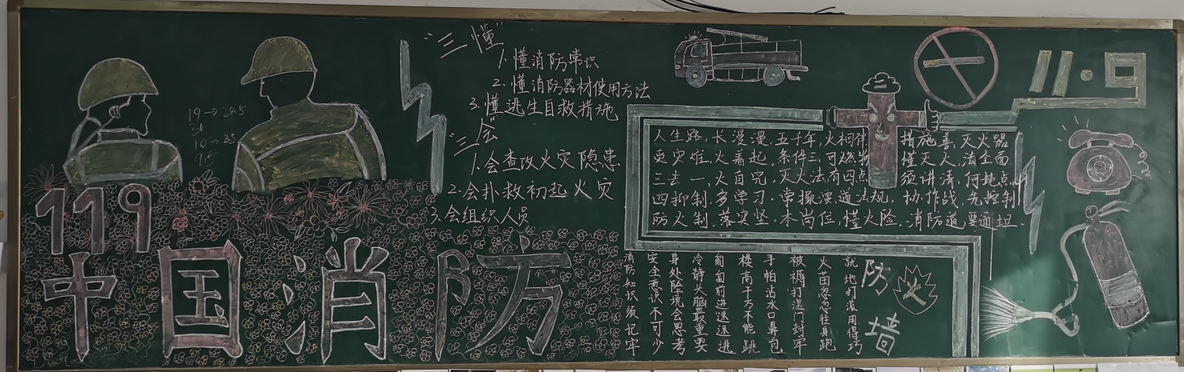 "三懂"
1.懂消防常识
2.懂消防器材使用方法
3.懂逃生自救措施
"三会"
1.会查改火灾隐患
2.会扑救初起火灾
3.会组织人员
119
中国消防
11·9
人生路,长漫漫,五千年,火相伴 措施善,灭火器
突灾难,火着起,条件三,可燃物 懂灭火,法全面
三去一,火自完,灭火法有四点 须讲清,何地点
四抑制,多学习,常操 法规,协作战,先控制
防火制,落实坚,本岗位,懂火险,消防道,要通坦
防火墙
就地用滚用得巧
火 身跑
被褥 门封牢
手帕沾湿口鼻包
楼高千万不能跳
匍匐前进迅速逃
冷静头脑最重要
身处险境会思考
安全意识不可少
消防知识须记牢